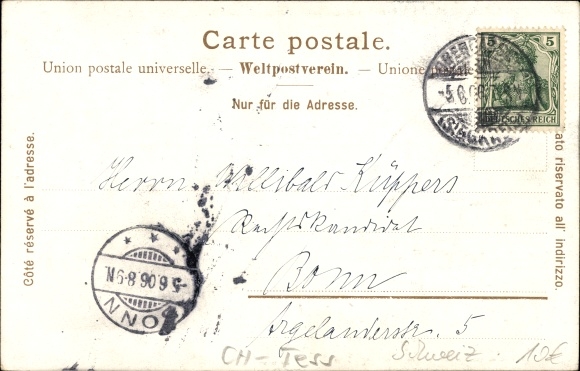 Carte postale.
Union postale universelle. — Weltpostverein. — Unione postale
Nur für die Adresse.
Côté réservé à l'adresse.
ato riservato all' indirizzo.
5
DEUTSCHES REICH
-5.6.06
(SIEGKREIS)
Herrn Willibald Küppers
Rechtskandidat
Bonn
Argelanderstr. 5
BONN
-5.6.06.8-9N.
CH-Tess
Schweiz. 10€